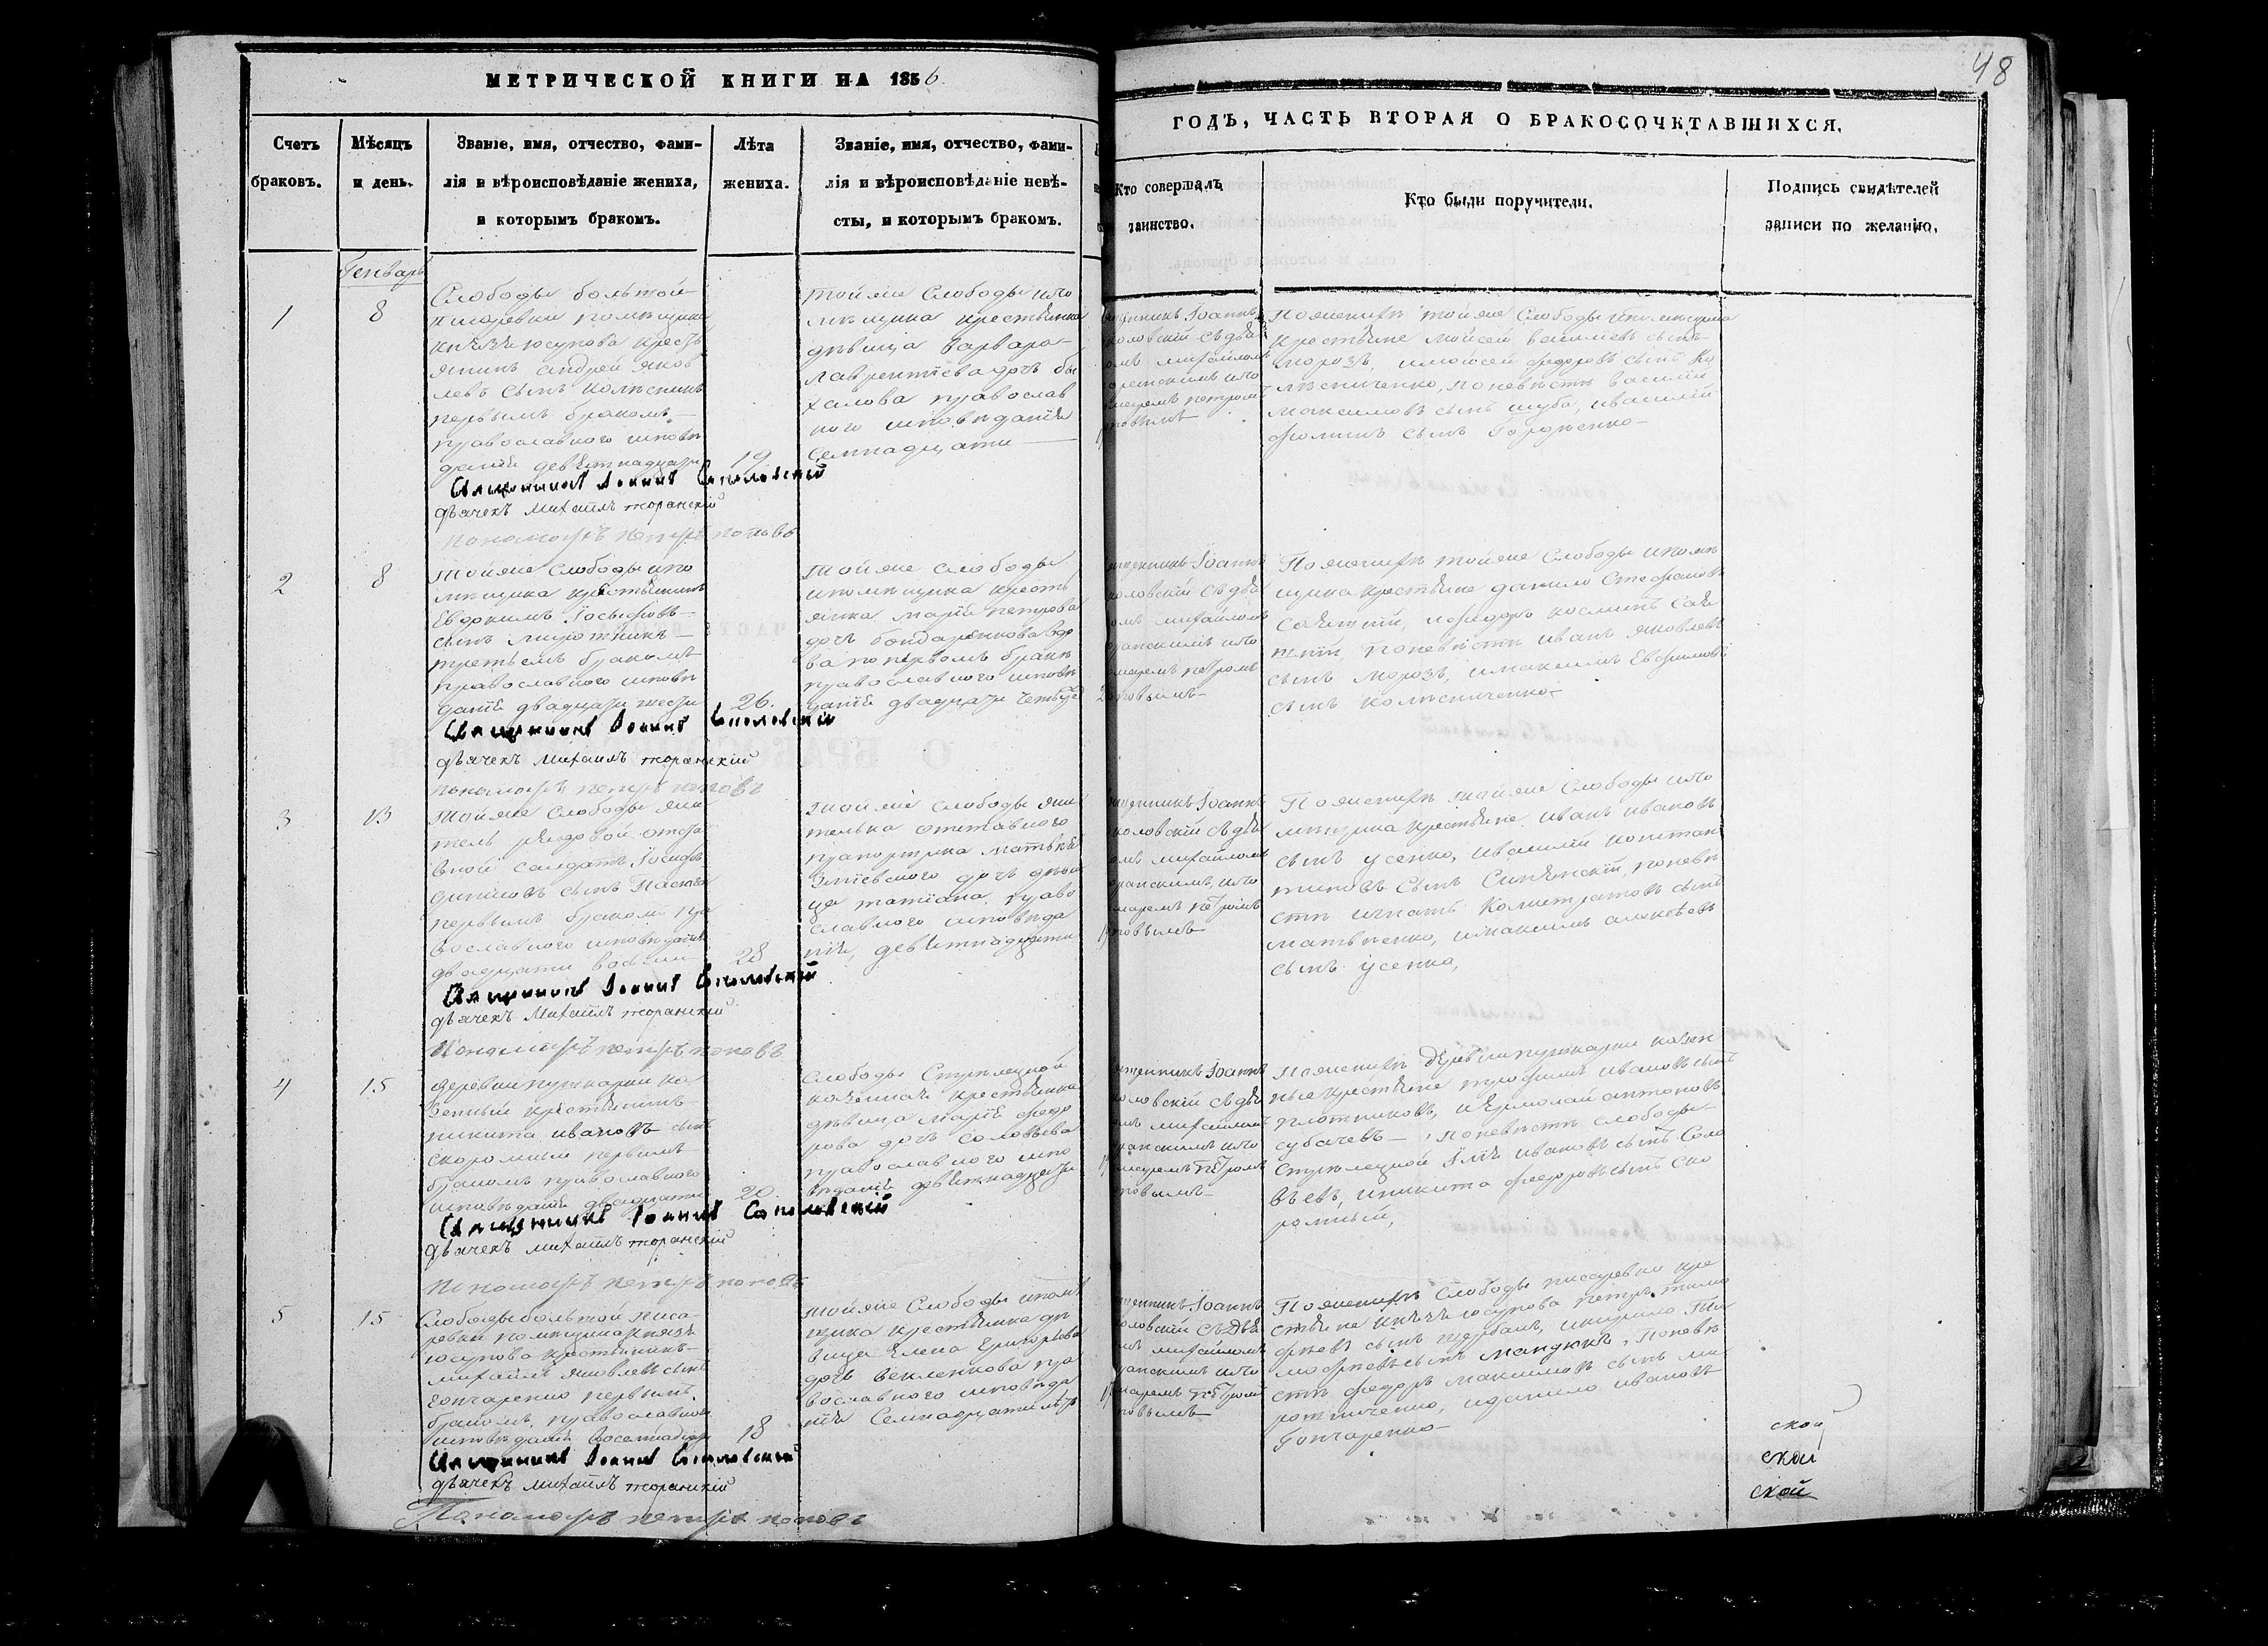 48
МЕТРИЧЕСКОЙ КНИГИ НА 1856
ГОДЪ, ЧАСТЬ ВТОРАЯ О БРАКОСОЧЕТАВШИХСЯ.
Счетъ
браковъ.
Мѣсяцъ
и день.
Званіе, имя, отчество, фами-
лія и вѣроисповѣданіе жениха,
и которымъ бракомъ.
Лѣта
жениха.
Званіе, имя, отчество, фами-
лія и вѣроисповѣданіе невѣ-
сты, и которымъ бракомъ.
Кто совершалъ
таинство.
Кто были поручители.
Подпись свидѣтелей
записи по желанію.
Генварь
1
8
Слободы большой
писаревки помѣщика
князя юсупова кресть
янинъ андрей яков
левъ сынъ колѣсникъ
первымъ бракомъ
православного исповѣ
данія девятнадцати
19
Священникъ Іоаннъ Соколовскій
дьячекъ Михаилъ
пономарь петръ поповъ
тойже Слободы ипо
мѣщика крестьянка
дѣвица Варвара
лаврентіева дочь
православ
ного исповѣданія
Семнадцати
щенникъ Іоаннъ
коловскій сдья
омъ михайломъ
ипо
маремъ петромъ
повымъ
Поженихѣ тойже Слободы ипомѣщика
Крестьяне мойсей сынъ
морозъ, имойсей федоровъ сынъ Ко
лѣсниченко, поневѣстѣ василій
максимовъ сынъ шуба, ивасилій
фоминъ сынъ
2
8
Тойже Слободы ипо
мѣщика крестьянинъ
Евдокимъ Іосифовъ
сынъ мирошникъ
третьемъ бракомъ
православного исповѣ
данія двадцати шести
26.
Священникъ Іоаннъ Соколовскій
дьячекъ Михаилъ
пономарь петръ поповъ
Тойже слободы
ипомѣщика кресть
янка марія петрова
дочь бондаренкова вдо
ва попервомъ бракѣ
православного исповѣ
данія двадцати четырех
щенникъ Іоаннъ
коловскій сдья
омъ михайломъ
ипо
маремъ петромъ
повымъ
Поженихѣ тойже Слободы ипомѣ
щика крестьяне данило Стефановъ
ифедоръ косминъ
поневѣстѣ иванъ яковлевъ
сынъ Морозъ, имаксимъ Евфимовъ
сынъ колѣсниченко
3
13
Тойже Слободы жи
тель рядовой отста
вной салдатъ Іосифъ
сынъ
первымъ бракомъ пра
вославного исповѣданія
двадцати восьми
28
Священникъ Іоаннъ Соколовскій
дьячекъ Михаилъ
Пономарь петръ поповъ
Тойже Слободы жи
телька отставного
прапорщика матвѣя
Зміевского дочь дѣви
ца татіана, право
славного исповѣда
нія, девятнадцати
щенникъ Іоаннъ
коловскій сдья
омъ михайломъ
ипо
маремъ петромъ
повымъ
Поженихѣ тойже Слободы ипо
мѣщика крестьяне иванъ ивановъ
сынъ усенко, ивасилій констан
тиновъ сынъ поневѣ
стѣ игнатъ сынъ
матвѣенко, имаксимъ алексѣевъ
сынъ усенко,
4
15
деревни пушкарни ка
зенный крестьянинъ
никита ивановъ сынъ
скоромный первымъ
бракомъ православного
исповѣданія двадцати
20.
Священникъ Іоаннъ Соколовскій
дьячекъ михаилъ
пономарь петръ поповъ
Слободы Стрѣлецкой
казенная крестьянка
дѣвица Марія федо
рова дочь соловьева
православного испо
вѣданія девятнадцати
щенникъ Іоаннъ
коловскій сдья
омъ михайломъ
ипо
маремъ петромъ
повымъ
Поженихѣ деревни пушкарни казен
ные крестьяне трофимъ ивановъ сынъ
плотниковъ, иЕрмолай антоновъ
субачевъ, поневѣстѣ слободы
стрѣлецкой ивановъ сынъ Соло
вьевъ, иникита федоровъ сынъ ско
ромный,
5
15
Слободы большой писа
ревки помѣщика князя
юсупова крестьянинъ
михаилъ яковлевъ сынъ
гончаренко первымъ
бракомъ, православного
исповѣданія восемнадцати
18
Священникъ Іоаннъ Соколовскій
дьячекъ михаилъ
Пономарь петръ поповъ
тойже Слободы ипомѣ
щика крестьянка дѣ
вица Елена Григорьева
дочь векленкова пра
вославного исповѣда
нія Семнадцати лѣтъ
щенникъ Іоаннъ
коловскій сдья
омъ михайломъ
ипо
маремъ петромъ
повымъ
Поженихѣ Слободы писаревки кре
стьяне князя юсупова петръ тимо
феевъ сынъ щербакъ, икирило Ти
мофеевъ сынъ мандюкъ, поневѣ
стѣ федоръ максимовъ сынъ ми
рошниченко, иданило ивановъ
Гончаренко
ской
ской
ской